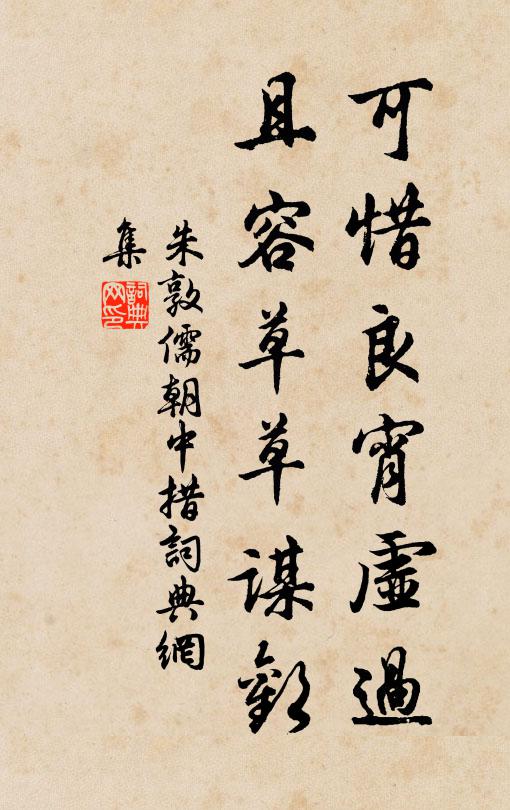 可惜良宵虛過
且容草草謀歡
朱敦儒朝中措詞典網
集
詞典網印